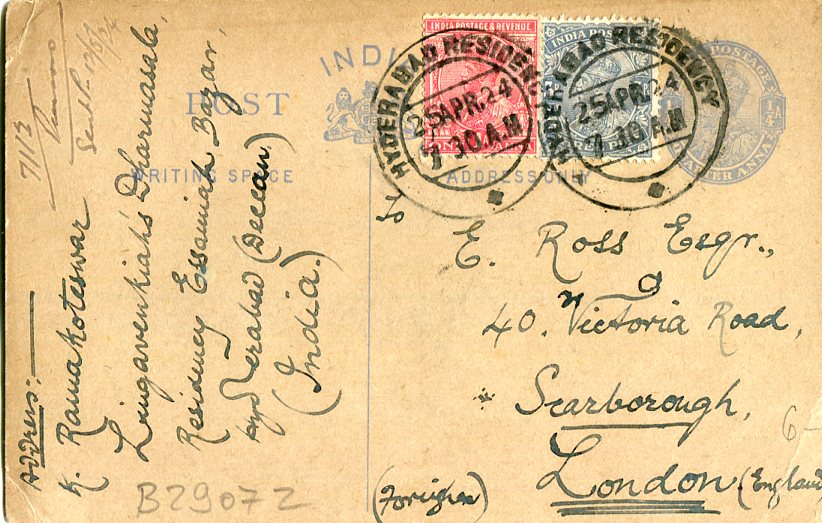 INDIA
POST
WRITING SPACE
ADDRESS ONLY
INDIA POSTAGE & REVENUE
INDIA POSTAGE
POSTAGE
¼ A
QUARTER ANNA
HYDERABAD RESIDENCY
25 APR. 24
7 30 A.M
HYDERABAD RESIDENCY
25 APR. 24
7 30 A.M
To
E. Ross Esqr.,
40. Victoria Road,
Scarborough,
London (England
(Foreign)
6-
Address:-
K. Ramakoteswar
Lingavenkiah's Dharmasala,
Residency Essamiah Bazar,
Hyderabad (Deccan)
(India.)
7113
B29072